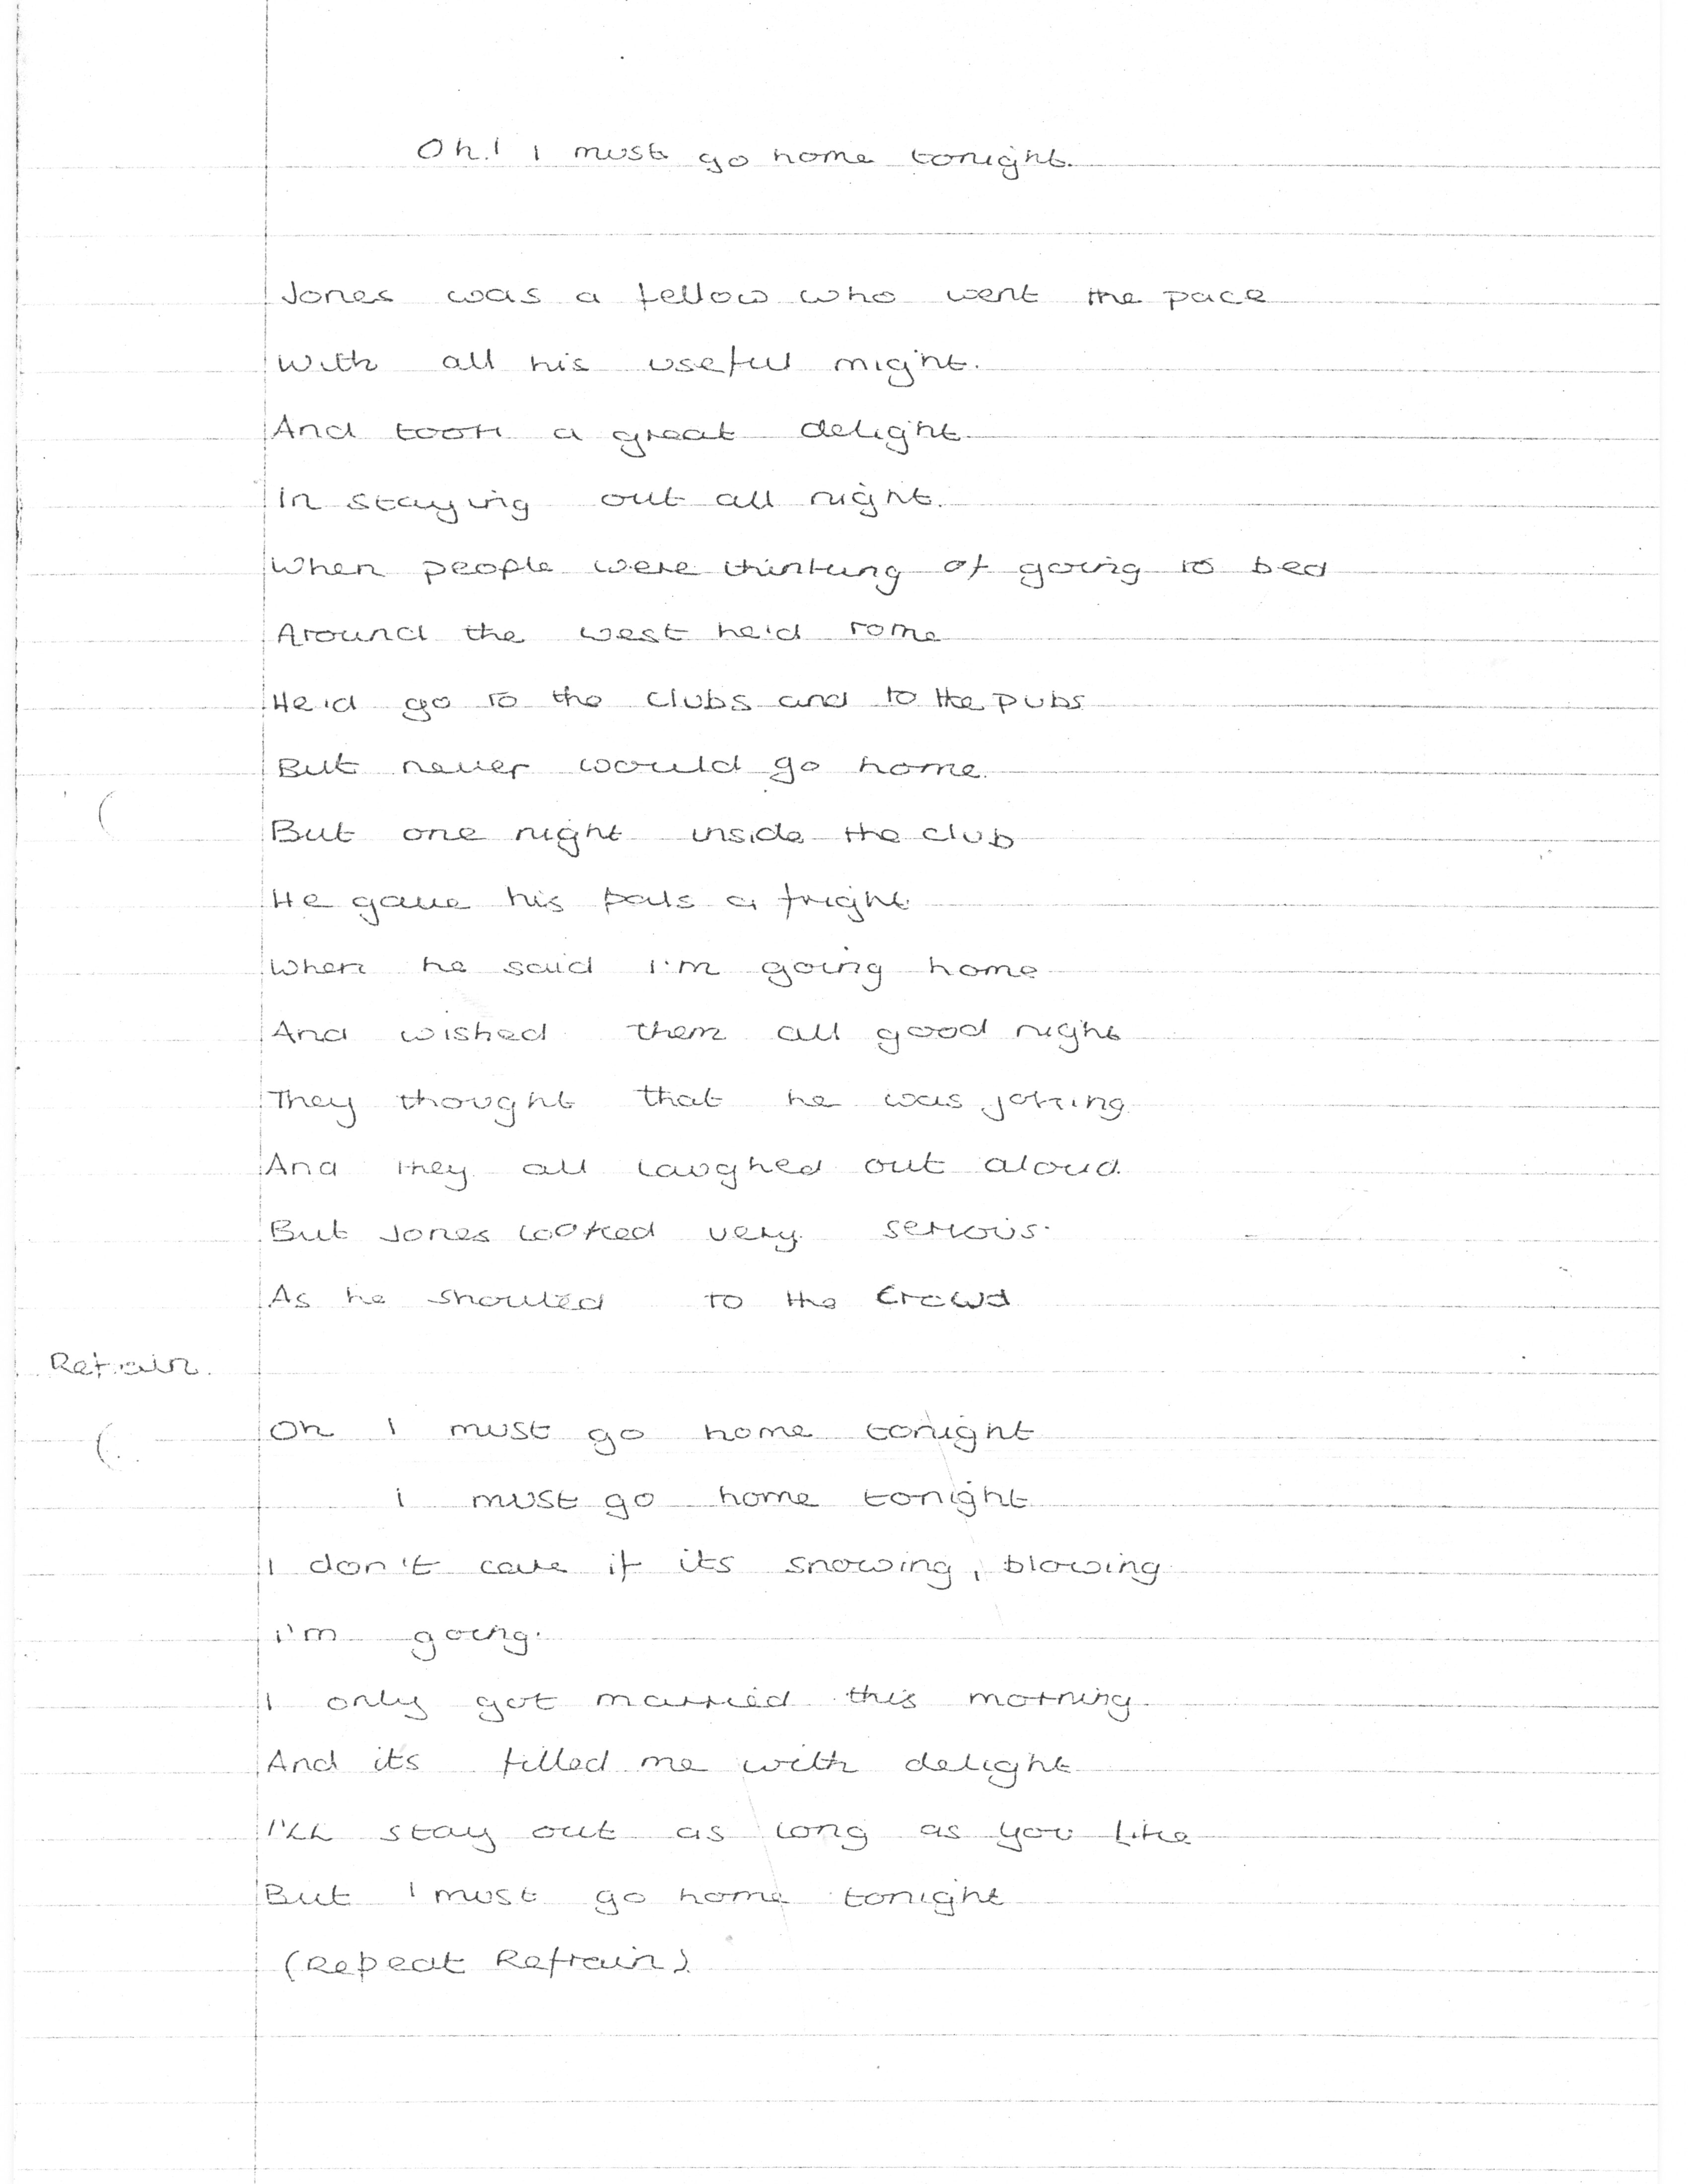 Oh! I must go home tonight.
Jones was a fellow who went the pace
With all his useful might.
And took a great delight
In staying out all night.
When people were thinking of going to bed
Around the west he'd rome
He'd go to the clubs and to the pubs
But never would go home.
But one night inside the club
He gave his pals a fright
When he said I'm going home
And wished them all good night
They thought that he was joking
And they all laughed out aloud.
But Jones looked very serious.
As he shouted to the crowd
Refrain.
Oh I must go home tonight
I must go home tonight
I don't care if its snowing, blowing
I'm going.
I only got married this morning.
And its filled me with delight
I'll stay out as long as you like
But I must go home tonight
(Repeat Refrain)